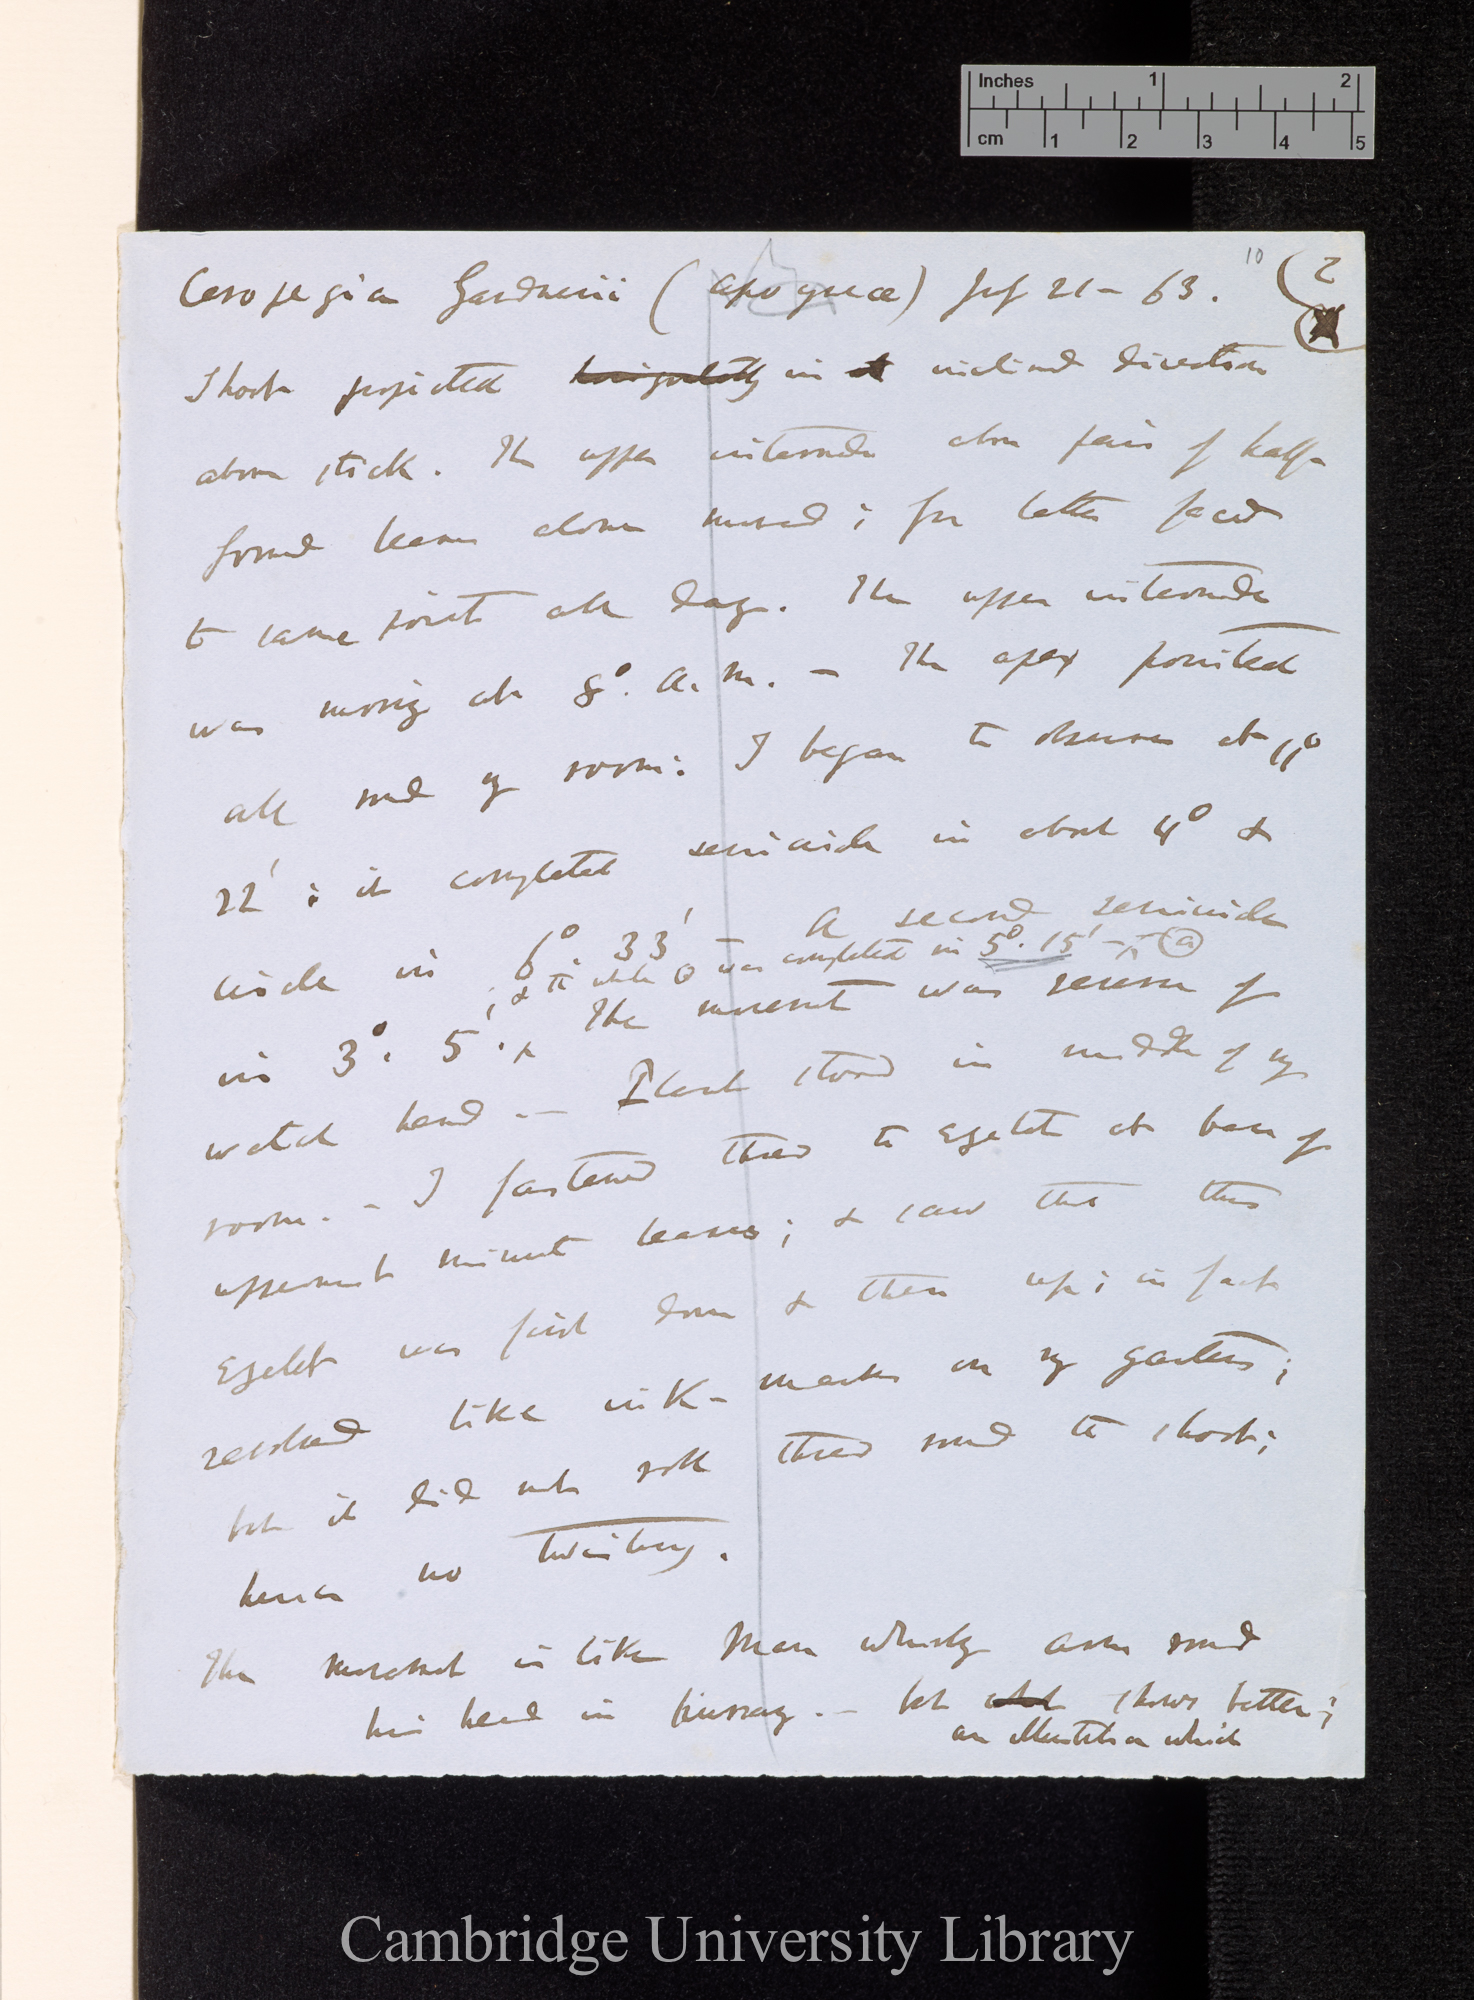 Inches 1 2
cm 1 2 3 4 5
10 (2
Ceropegia Gardnerii (Apocyneæ) July 21 – 63.
Shoot projected horizontally in inclined direction
above stick. The upper internode above pair of half-
formed leaves alone moved; for latter faced
to same point all day. The upper internode
was moving at 8°. A.M. – The apex pointed
all round my room: I began to observe at 11°
22'; it completed semicircle in about 4° &
circle in 6°. 33' – A second semicircle
; & the whole O was completed in 5°. 15' – (a)
in 3°. 5'. The movement was reverse of
watch hand. – Plant stood in middle of my
room. – I fastened thread to Eyelet at base of
uppermost minute leaves; & saw that this
Eyelet was first down & then up; in fact
revolved like ink-marks on my garters;
but it did not roll thread round the shoot;
hence no twisting.
The movement is like Man whirling arm round
his head in hurrying. – but shows better;
an illustration which
Cambridge University Library